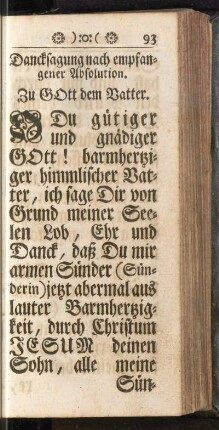 ):o:( 93
Dancksagung nach empfan-
gener Absolution.
Zu GOtt dem Vatter.
O Du gütiger
und gnädiger
GOtt! barmhertzi-
ger himmlischer Vat-
ter, ich sage Dir von
Grund meiner See-
len Lob, Ehr und
Danck, daß Du mir
armen Sünder (Sün-
derin) jetzt abermal aus
lauter Barmhertzig-
keit, durch Christum
JESUM deinen
Sohn, alle meine
Sün-